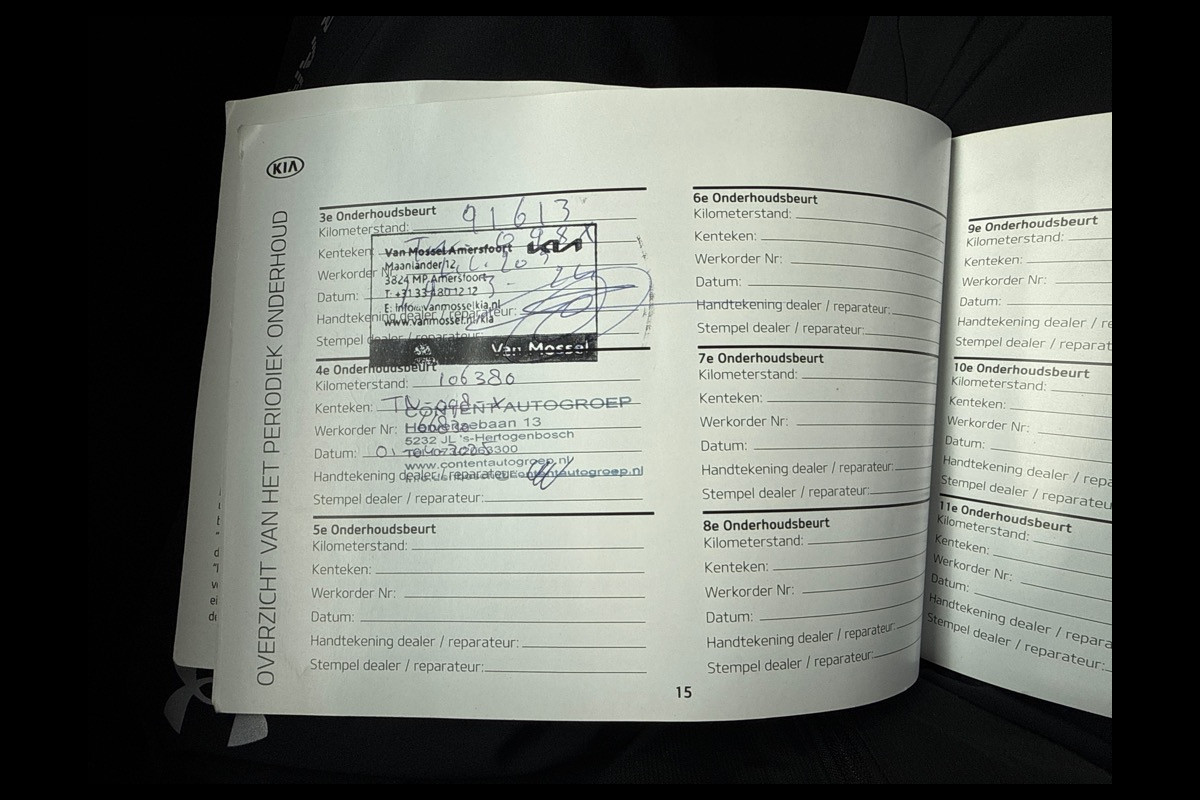 KIA
OVERZICHT VAN HET PERIODIEK ONDERHOUD
3e Onderhoudsbeurt
Kilometerstand: 91613
Kenteken:
Werkorder Nr:
Datum:
Handtekening dealer / reparateur:
Stempel dealer / reparateur:
Van Mossel Amersfoort KIA
Maanlander 12,
3824 MP Amersfoort
T: +31 33 480 12 12
E: info@vanmosselkia.nl
www.vanmossel.nl/kia
Van Mossel
4e Onderhoudsbeurt
Kilometerstand: 106380
Kenteken: TN-098-X
Werkorder Nr:
Datum:
Handtekening dealer / reparateur:
Stempel dealer / reparateur:
CONTENT AUTOGROEP
13
5232 JL 's-Hertogenbosch
www.contentautogroep.nl
5e Onderhoudsbeurt
Kilometerstand:
Kenteken:
Werkorder Nr:
Datum:
Handtekening dealer / reparateur:
Stempel dealer / reparateur:
6e Onderhoudsbeurt
Kilometerstand:
Kenteken:
Werkorder Nr:
Datum:
Handtekening dealer / reparateur:
Stempel dealer / reparateur:
7e Onderhoudsbeurt
Kilometerstand:
Kenteken:
Werkorder Nr:
Datum:
Handtekening dealer / reparateur:
Stempel dealer / reparateur:
8e Onderhoudsbeurt
Kilometerstand:
Kenteken:
Werkorder Nr:
Datum:
Handtekening dealer / reparateur:
Stempel dealer / reparateur:
15
9e Onderhoudsbeurt
Kilometerstand:
Kenteken:
Werkorder Nr:
Datum:
Handtekening dealer / re
Stempel dealer / reparat
10e Onderhoudsbeurt
Kilometerstand:
Kenteken:
Werkorder Nr:
Datum:
Handtekening dealer / repa
Stempel dealer / reparateu
11e Onderhoudsbeurt
Kilometerstand:
Kenteken:
Werkorder Nr:
Datum:
Handtekening dealer / repara
Stempel dealer / reparateur: